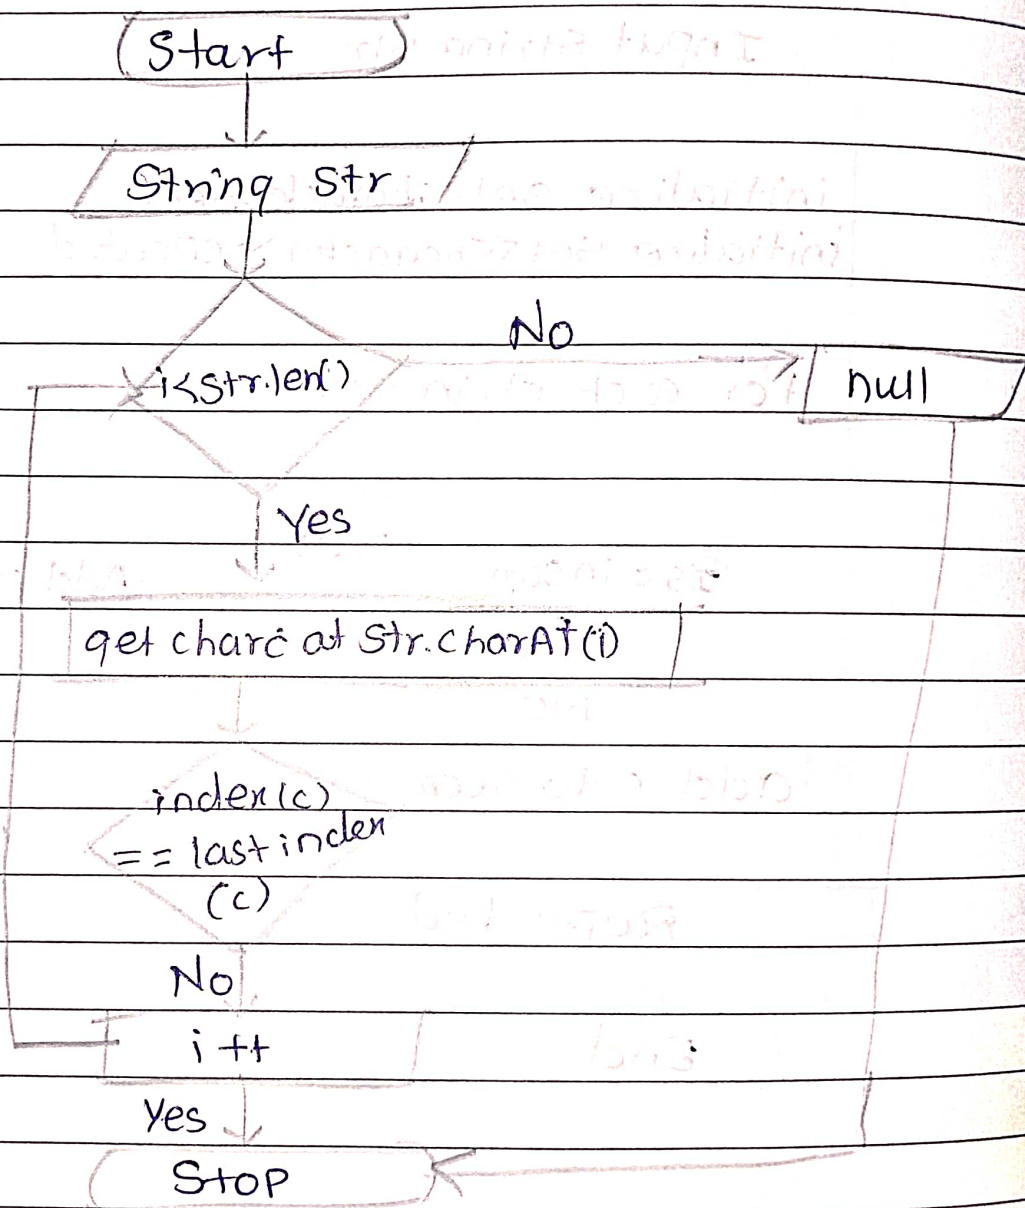 Start
String Str
No
i<Str.len()
null
Yes
get char c at Str.charAt(i)
index(c)
== last index
(c)
No
i ++
Yes
Stop